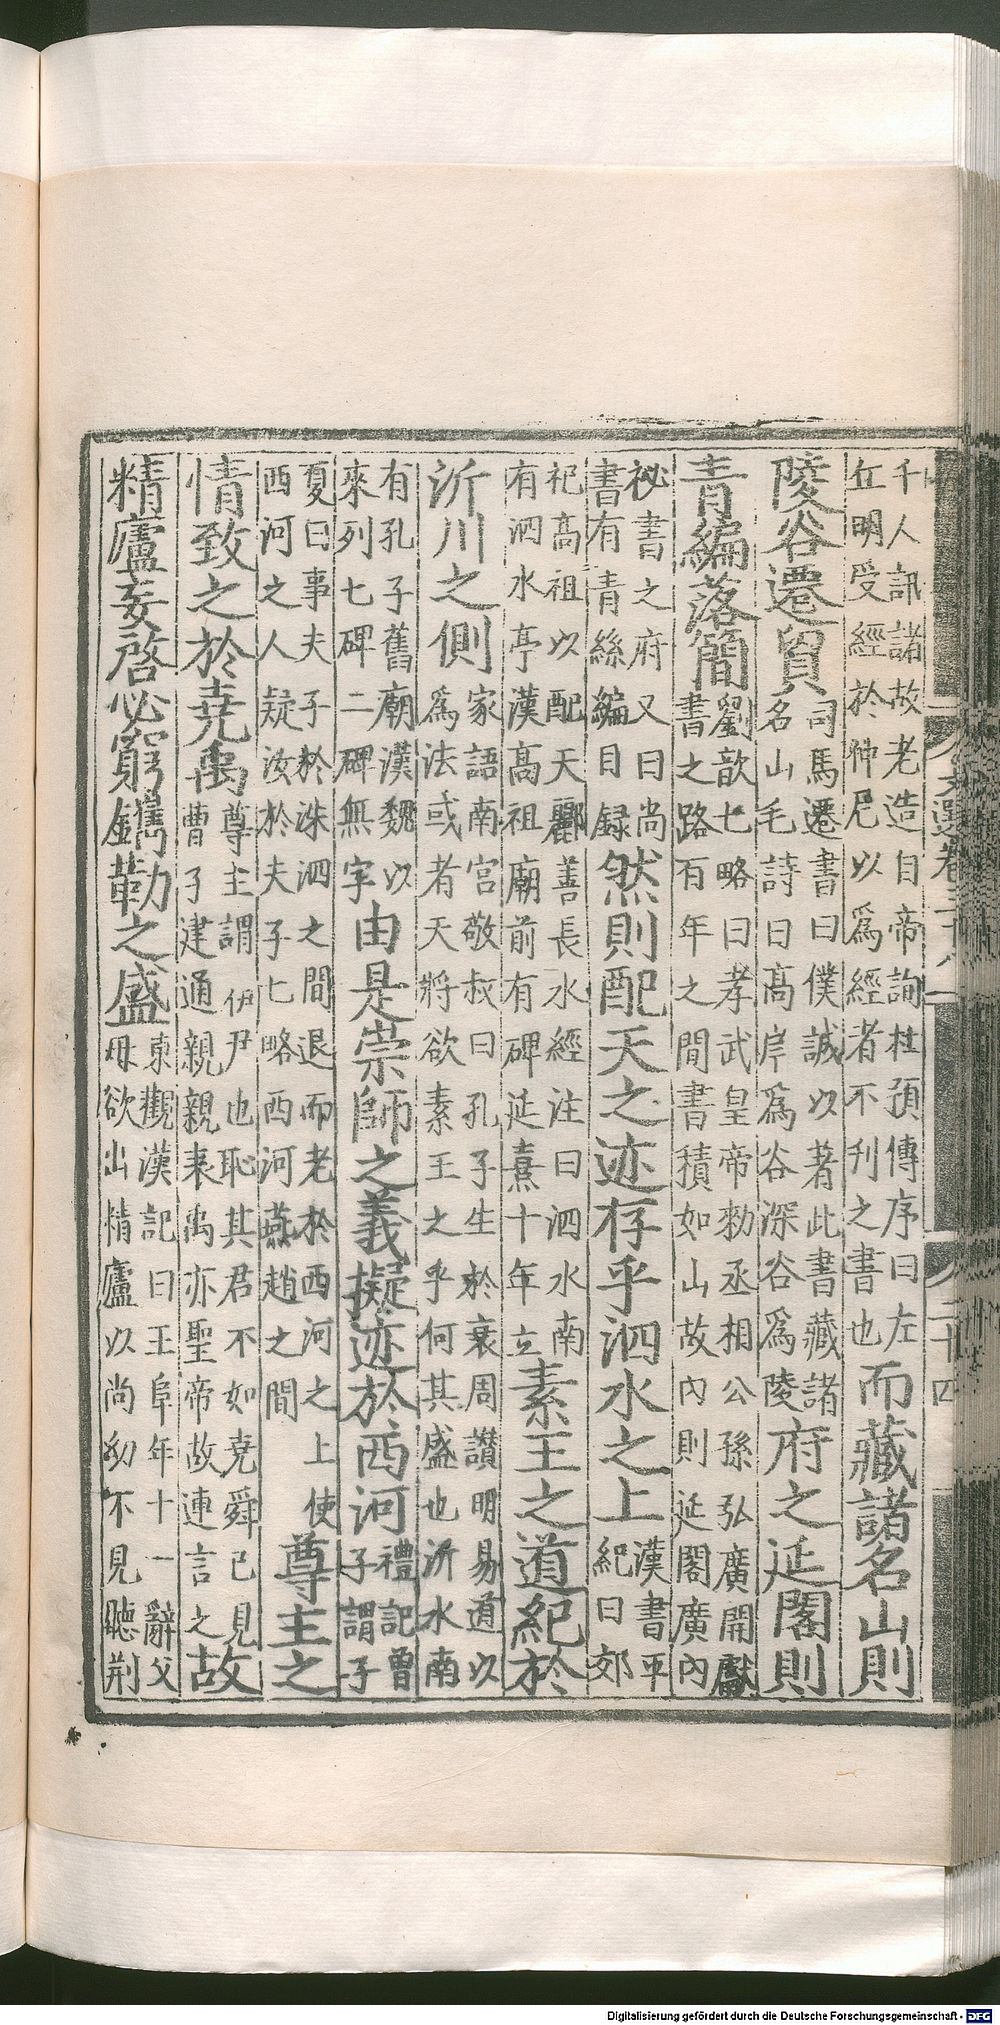 文選卷三十八 二十四
千人訊諸故老造自帝詢杜預傳序曰左
丘明受經於仲尼以爲經者不刊之書也
而藏諸名山則
陵谷遷貿
司馬遷書曰僕誠以著此書藏諸
名山毛詩曰高岸爲谷深谷爲陵
府之延閣則
青編落簡
劉歆七略曰孝武皇帝勑丞相公孫弘廣開獻
書之路有年之間書積如山故內則延閣廣內
祕書之府又曰尚
書有青絲編目録
然則配天之迹存乎泗水之上
漢書平
紀曰郊
祀高祖以配天酈善長水經注曰泗水南
有泗水亭漢高祖廟前有碑延熹十年立
素王之道紀於
沂川之側
家語南宮敬叔曰孔子生於衰周讚明易道以
爲法或者天將欲素王之乎何其盛也沂水南
有孔子舊廟漢魏以
來列七碑二碑無字
由是崇師之義擬迹於西河
禮記曾
子謂子
夏曰事夫子於洙泗之間退而老於西河之上使
西河之人疑汝於夫子七略西河燕趙之間
尊主之
情致之於堯禹
尊主謂伊尹也恥其君不如堯舜已見
曹子建通親親表禹亦聖帝故連言之
故
精廬妄啓必窮鐫勒之盛
東觀漢記曰王阜年十一辭父
母欲出精廬以尚幼不見聽荆
Digitalisierung gefördert durch die Deutsche Forschungsgemeinschaft - DFG